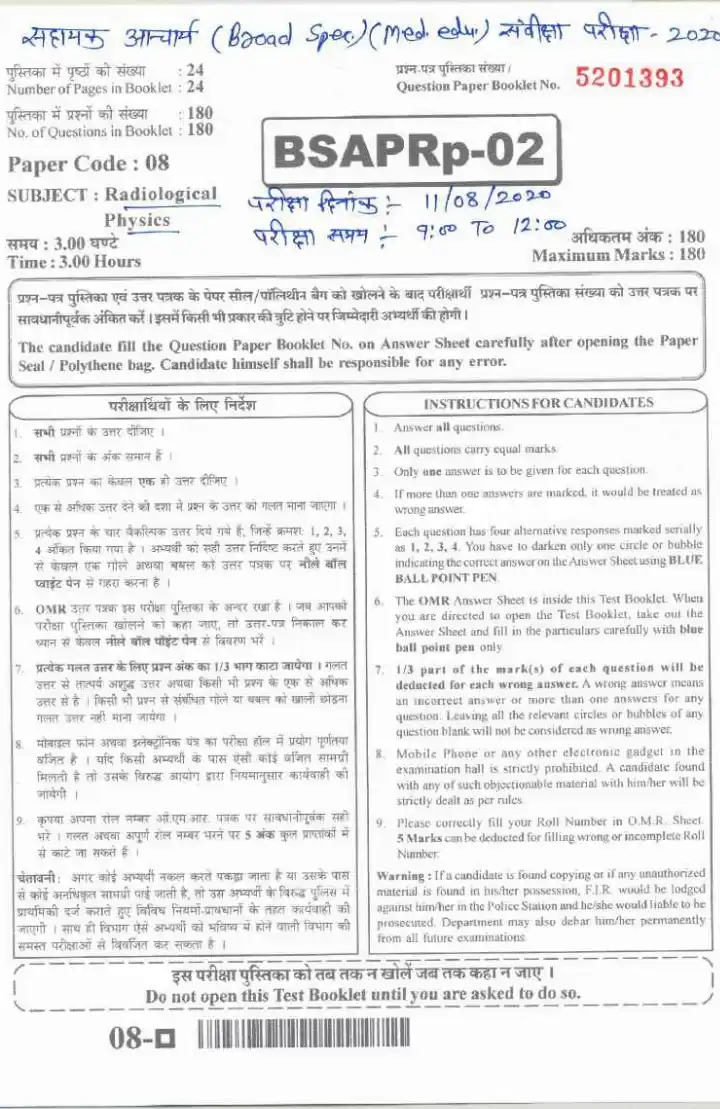 सहायक आचार्य (Broad Spec.) (Med. edu.) संवीक्षा परीक्षा - 2020
पुस्तिका में पृष्ठों की संख्या : 24
Number of Pages in Booklet : 24
पुस्तिका में प्रश्नों की संख्या : 180
No. of Questions in Booklet : 180
Paper Code : 08
SUBJECT : Radiological
Physics
समय : 3.00 घण्टे
Time : 3.00 Hours
प्रश्न-पत्र पुस्तिका संख्या /
Question Paper Booklet No. 5201393
BSAPRp-02
परीक्षा दिनांक :- 11/08/2020
परीक्षा समय :- 9:00 TO 12:00
अधिकतम अंक : 180
Maximum Marks : 180
प्रश्न-पत्र पुस्तिका एवं उत्तर पत्रक के पेपर सील/पॉलिथीन बैग को खोलने के बाद परीक्षार्थी प्रश्न-पत्र पुस्तिका संख्या को उत्तर पत्रक पर
सावधानीपूर्वक अंकित करें । इसमें किसी भी प्रकार की त्रुटि होने पर जिम्मेदारी अभ्यर्थी की होगी ।
The candidate fill the Question Paper Booklet No. on Answer Sheet carefully after opening the Paper
Seal / Polythene bag. Candidate himself shall be responsible for any error.
परीक्षार्थियों के लिए निर्देश
1. सभी प्रश्नों के उत्तर दीजिए ।
2. सभी प्रश्नों के अंक समान हैं ।
3. प्रत्येक प्रश्न का केवल एक ही उत्तर दीजिए ।
4. एक से अधिक उत्तर देने की दशा में प्रश्न के उत्तर को गलत माना जाएगा ।
5. प्रत्येक प्रश्न के चार वैकल्पिक उत्तर दिये गये हैं, जिन्हें क्रमशः 1, 2, 3,
4 अंकित किया गया है । अभ्यर्थी को सही उत्तर निर्दिष्ट करते हुए उनमें
से केवल एक गोले अथवा बबल को उत्तर पत्रक पर नीले बॉल
प्वाइंट पेन से गहरा करना है ।
6. OMR उत्तर पत्रक इस परीक्षा पुस्तिका के अन्दर रखा है । जब आपको
परीक्षा पुस्तिका खोलने को कहा जाए, तो उत्तर-पत्र निकाल कर
ध्यान से केवल नीले बॉल पॉइंट पेन से विवरण भरें ।
7. प्रत्येक गलत उत्तर के लिए प्रश्न अंक का 1/3 भाग काटा जायेगा । गलत
उत्तर से तात्पर्य अशुद्ध उत्तर अथवा किसी भी प्रश्न के एक से अधिक
उत्तर से है । किसी भी प्रश्न से संबंधित गोले या बबल को खाली छोड़ना
गलत उत्तर नहीं माना जायेगा ।
8. मोबाइल फोन अथवा इलेक्ट्रोनिक यंत्र का परीक्षा हॉल में प्रयोग पूर्णतया
वर्जित है । यदि किसी अभ्यर्थी के पास ऐसी कोई वर्जित सामग्री
मिलती है तो उसके विरुद्ध आयोग द्वारा नियमानुसार कार्यवाही की
जायेगी ।
9. कृपया अपना रोल नम्बर ओ.एम.आर. पत्रक पर सावधानीपूर्वक सही
भरें । गलत अथवा अपूर्ण रोल नम्बर भरने पर 5 अंक कुल प्राप्तांकों में
से काटे जा सकते हैं ।
चेतावनी : अगर कोई अभ्यर्थी नकल करते पकड़ा जाता है या उसके पास
से कोई अनधिकृत सामग्री पाई जाती है, तो उस अभ्यर्थी के विरुद्ध पुलिस में
प्राथमिकी दर्ज कराते हुए विविध नियमों-प्रावधानों के तहत कार्यवाही की
जाएगी । साथ ही विभाग ऐसे अभ्यर्थी को भविष्य में होने वाली विभाग की
समस्त परीक्षाओं से विवर्जित कर सकता है ।
INSTRUCTIONS FOR CANDIDATES
1. Answer all questions.
2. All questions carry equal marks.
3. Only one answer is to be given for each question.
4. If more than one answers are marked, it would be treated as
wrong answer.
5. Each question has four alternative responses marked serially
as 1, 2, 3, 4. You have to darken only one circle or bubble
indicating the correct answer on the Answer Sheet using BLUE
BALL POINT PEN.
6. The OMR Answer Sheet is inside this Test Booklet. When
you are directed to open the Test Booklet, take out the
Answer Sheet and fill in the particulars carefully with blue
ball point pen only
7. 1/3 part of the mark(s) of each question will be
deducted for each wrong answer. A wrong answer means
an incorrect answer or more than one answers for any
question. Leaving all the relevant circles or bubbles of any
question blank will not be considered as wrong answer.
8. Mobile Phone or any other electronic gadget in the
examination hall is strictly prohibited. A candidate found
with any of such objectionable material with him/her will be
strictly dealt as per rules.
9. Please correctly fill your Roll Number in O.M.R. Sheet.
5 Marks can be deducted for filling wrong or incomplete Roll
Number.
Warning : If a candidate is found copying or if any unauthorized
material is found in his/her possession, F.I.R. would be lodged
against him/her in the Police Station and he/she would liable to be
prosecuted. Department may also debar him/her permanently
from all future examinations.
इस परीक्षा पुस्तिका को तब तक न खोलें जब तक कहा न जाए ।
Do not open this Test Booklet until you are asked to do so.
08-